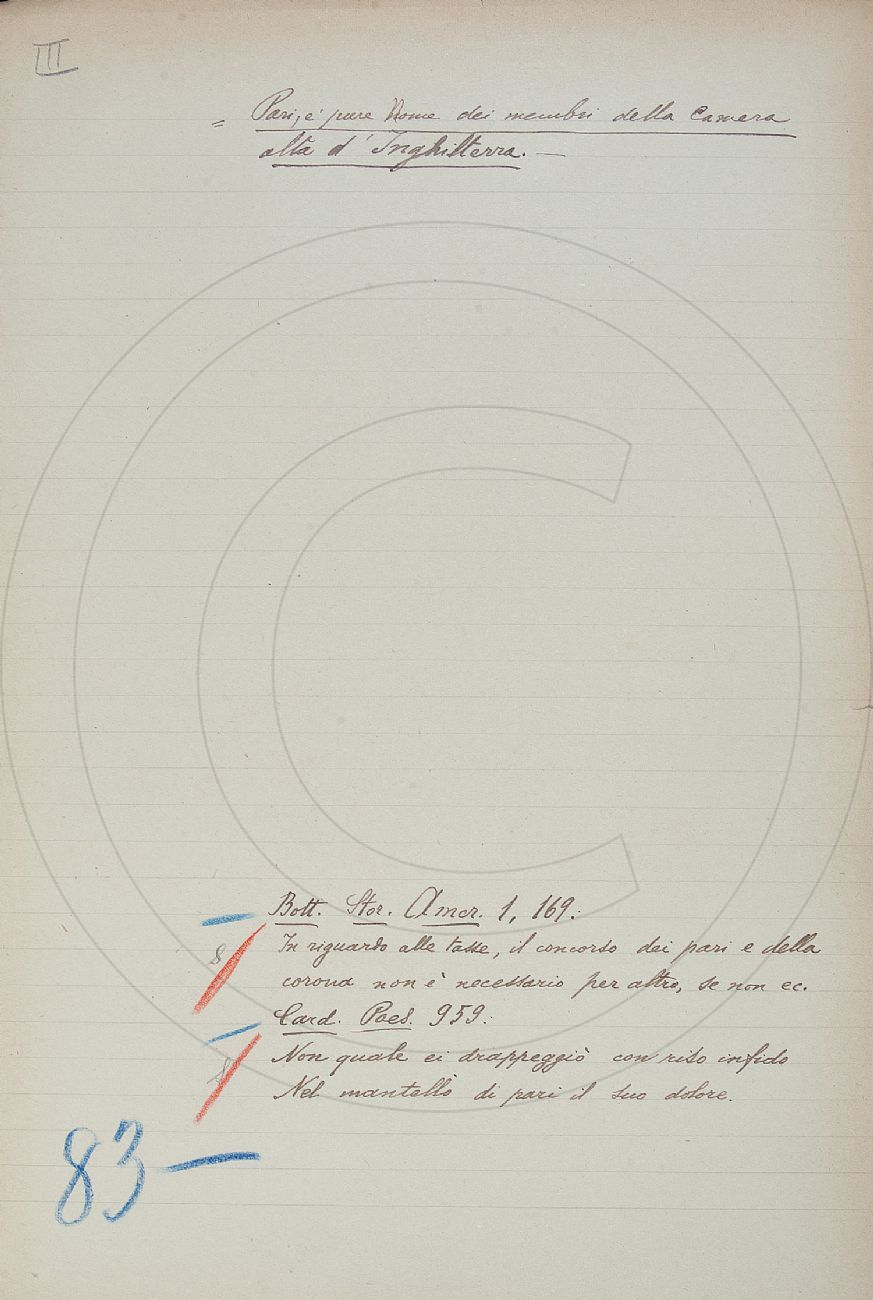 III
= Pari, è pure Nome dei membri della Camera
alta d'Inghilterra. —
Bott. Stor. Amer. 1, 169:
In riguardo alle tasse, il concorso dei pari e della
8
corona non è necessario per altro, se non ec.
Card. Poes. 959:
Non quale ei drappeggiò con riso infido
Nel mantello di pari il suo dolore.
83 —